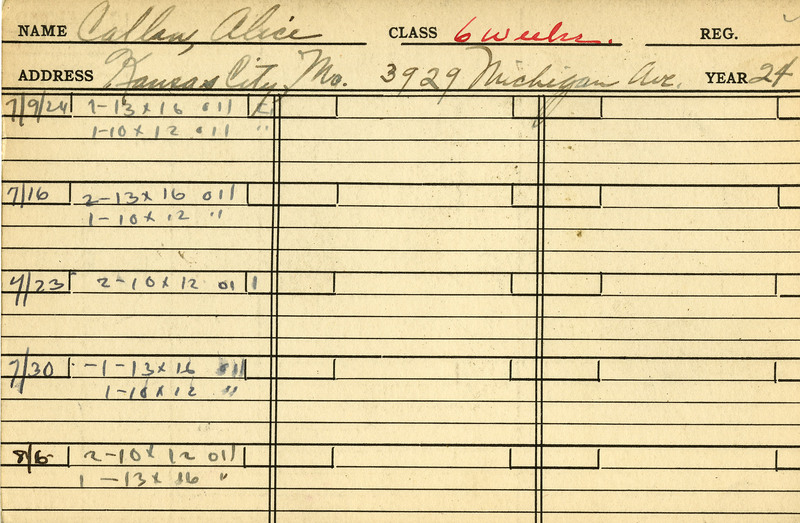 NAME Callan, Alice CLASS 6 weeks. REG.
ADDRESS Kansas City, Mo. 3929 Michigan Ave. YEAR 24
7/9/24 1-13x16 oil
1-10x12 oil "
7/16 2-13x16 oil
1-10x12 "
4/23 2-10x12 oil
7/30 -1-13x16 oil
1-10x12 "
8/6 2-10x12 oil
1-13x16 "